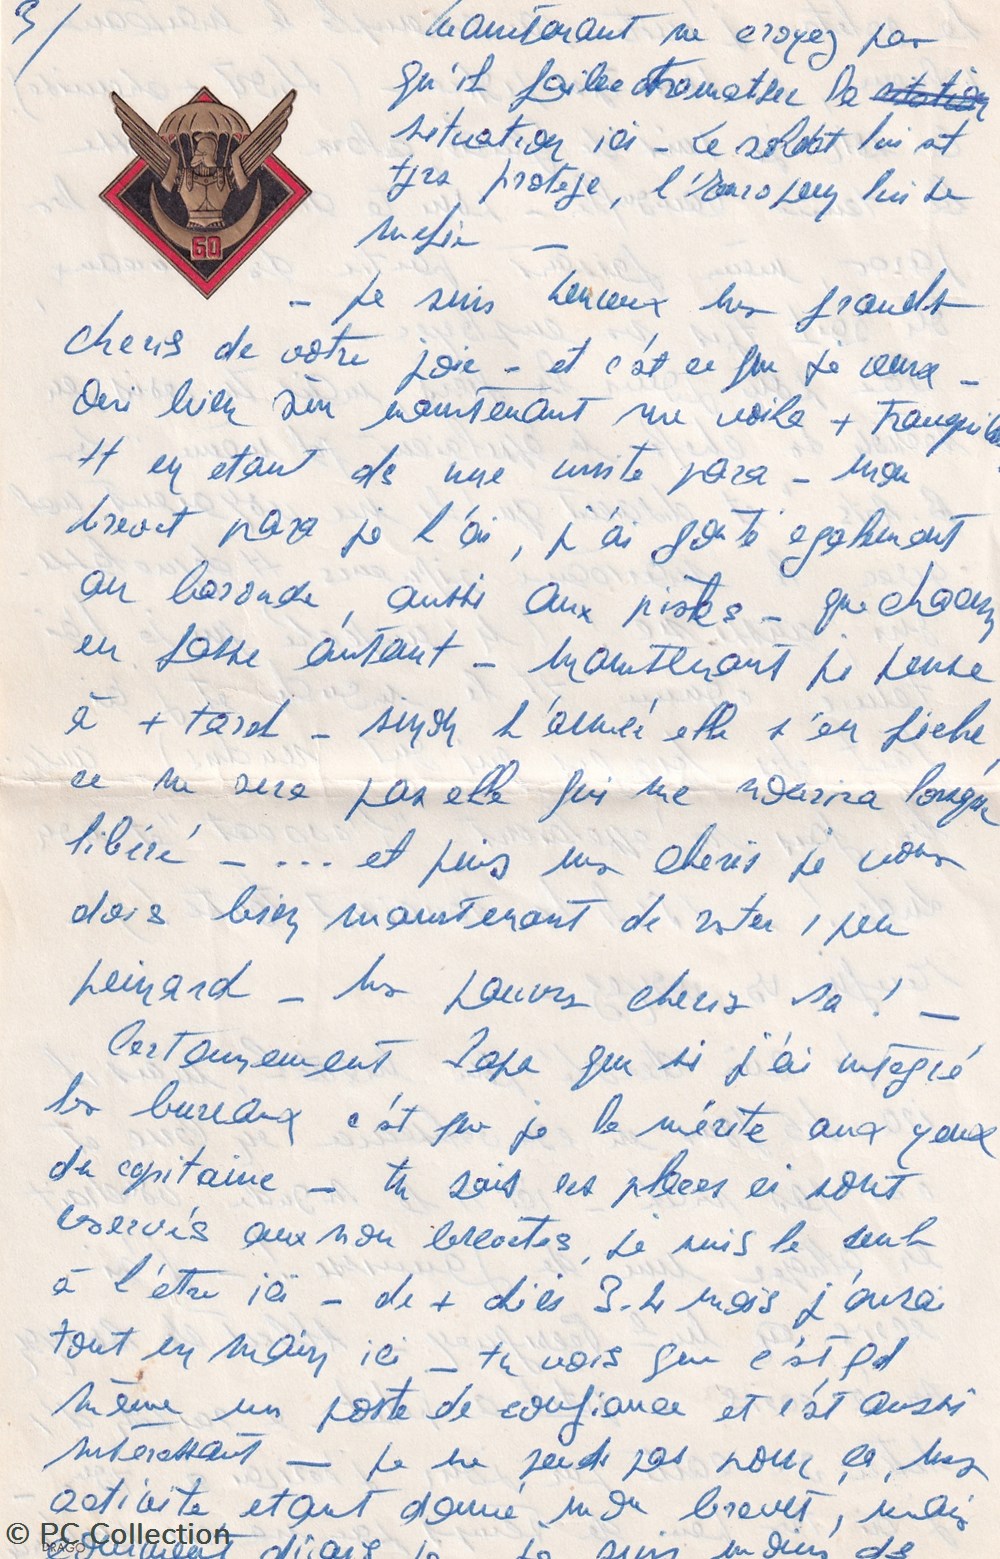 3/
Maintenant ne croyez pas
qu'il faille dramatiser la
situation ici - Le soldat lui est
très protégé, l'Européen lui se
méfie -
60
- Je suis heureux mes grands
cheris de votre joie - et c'est ce que je veux -
Oui bien sûr maintenant me voila + tranquille
tt en etant ds une unité para - mon
brevet para je l'ai, j'ai gouté egalement
au baroude, aussi aux pistes - que chacun
en fasse autant - Maintenant je pense
à + tard - sinon l'armée elle s'en fiche,
ce ne sera pas elle qui me nourrira lorsque
libéré - ... et puis mes cheris je vous
dois bien maintenant de rester 1 peu
peinard - Mes pauvres cheris va ! -
Certainement Papa que si j'ai intégré
les bureaux c'est que je le mérite aux yeux
du capitaine - tu sais ces places ci sont
reservés aux non brevetés, je suis le seul
à l'être ici - de + d'ici 3-4 mois j'aurai
tout en main ici - tu vois que c'est qd
même un poste de confiance et c'est aussi
intéressant - Je ne perds pas pour ça, mes
activités etant donné mon brevet, mais
je suis moins de
DRAGO
© PC Collection